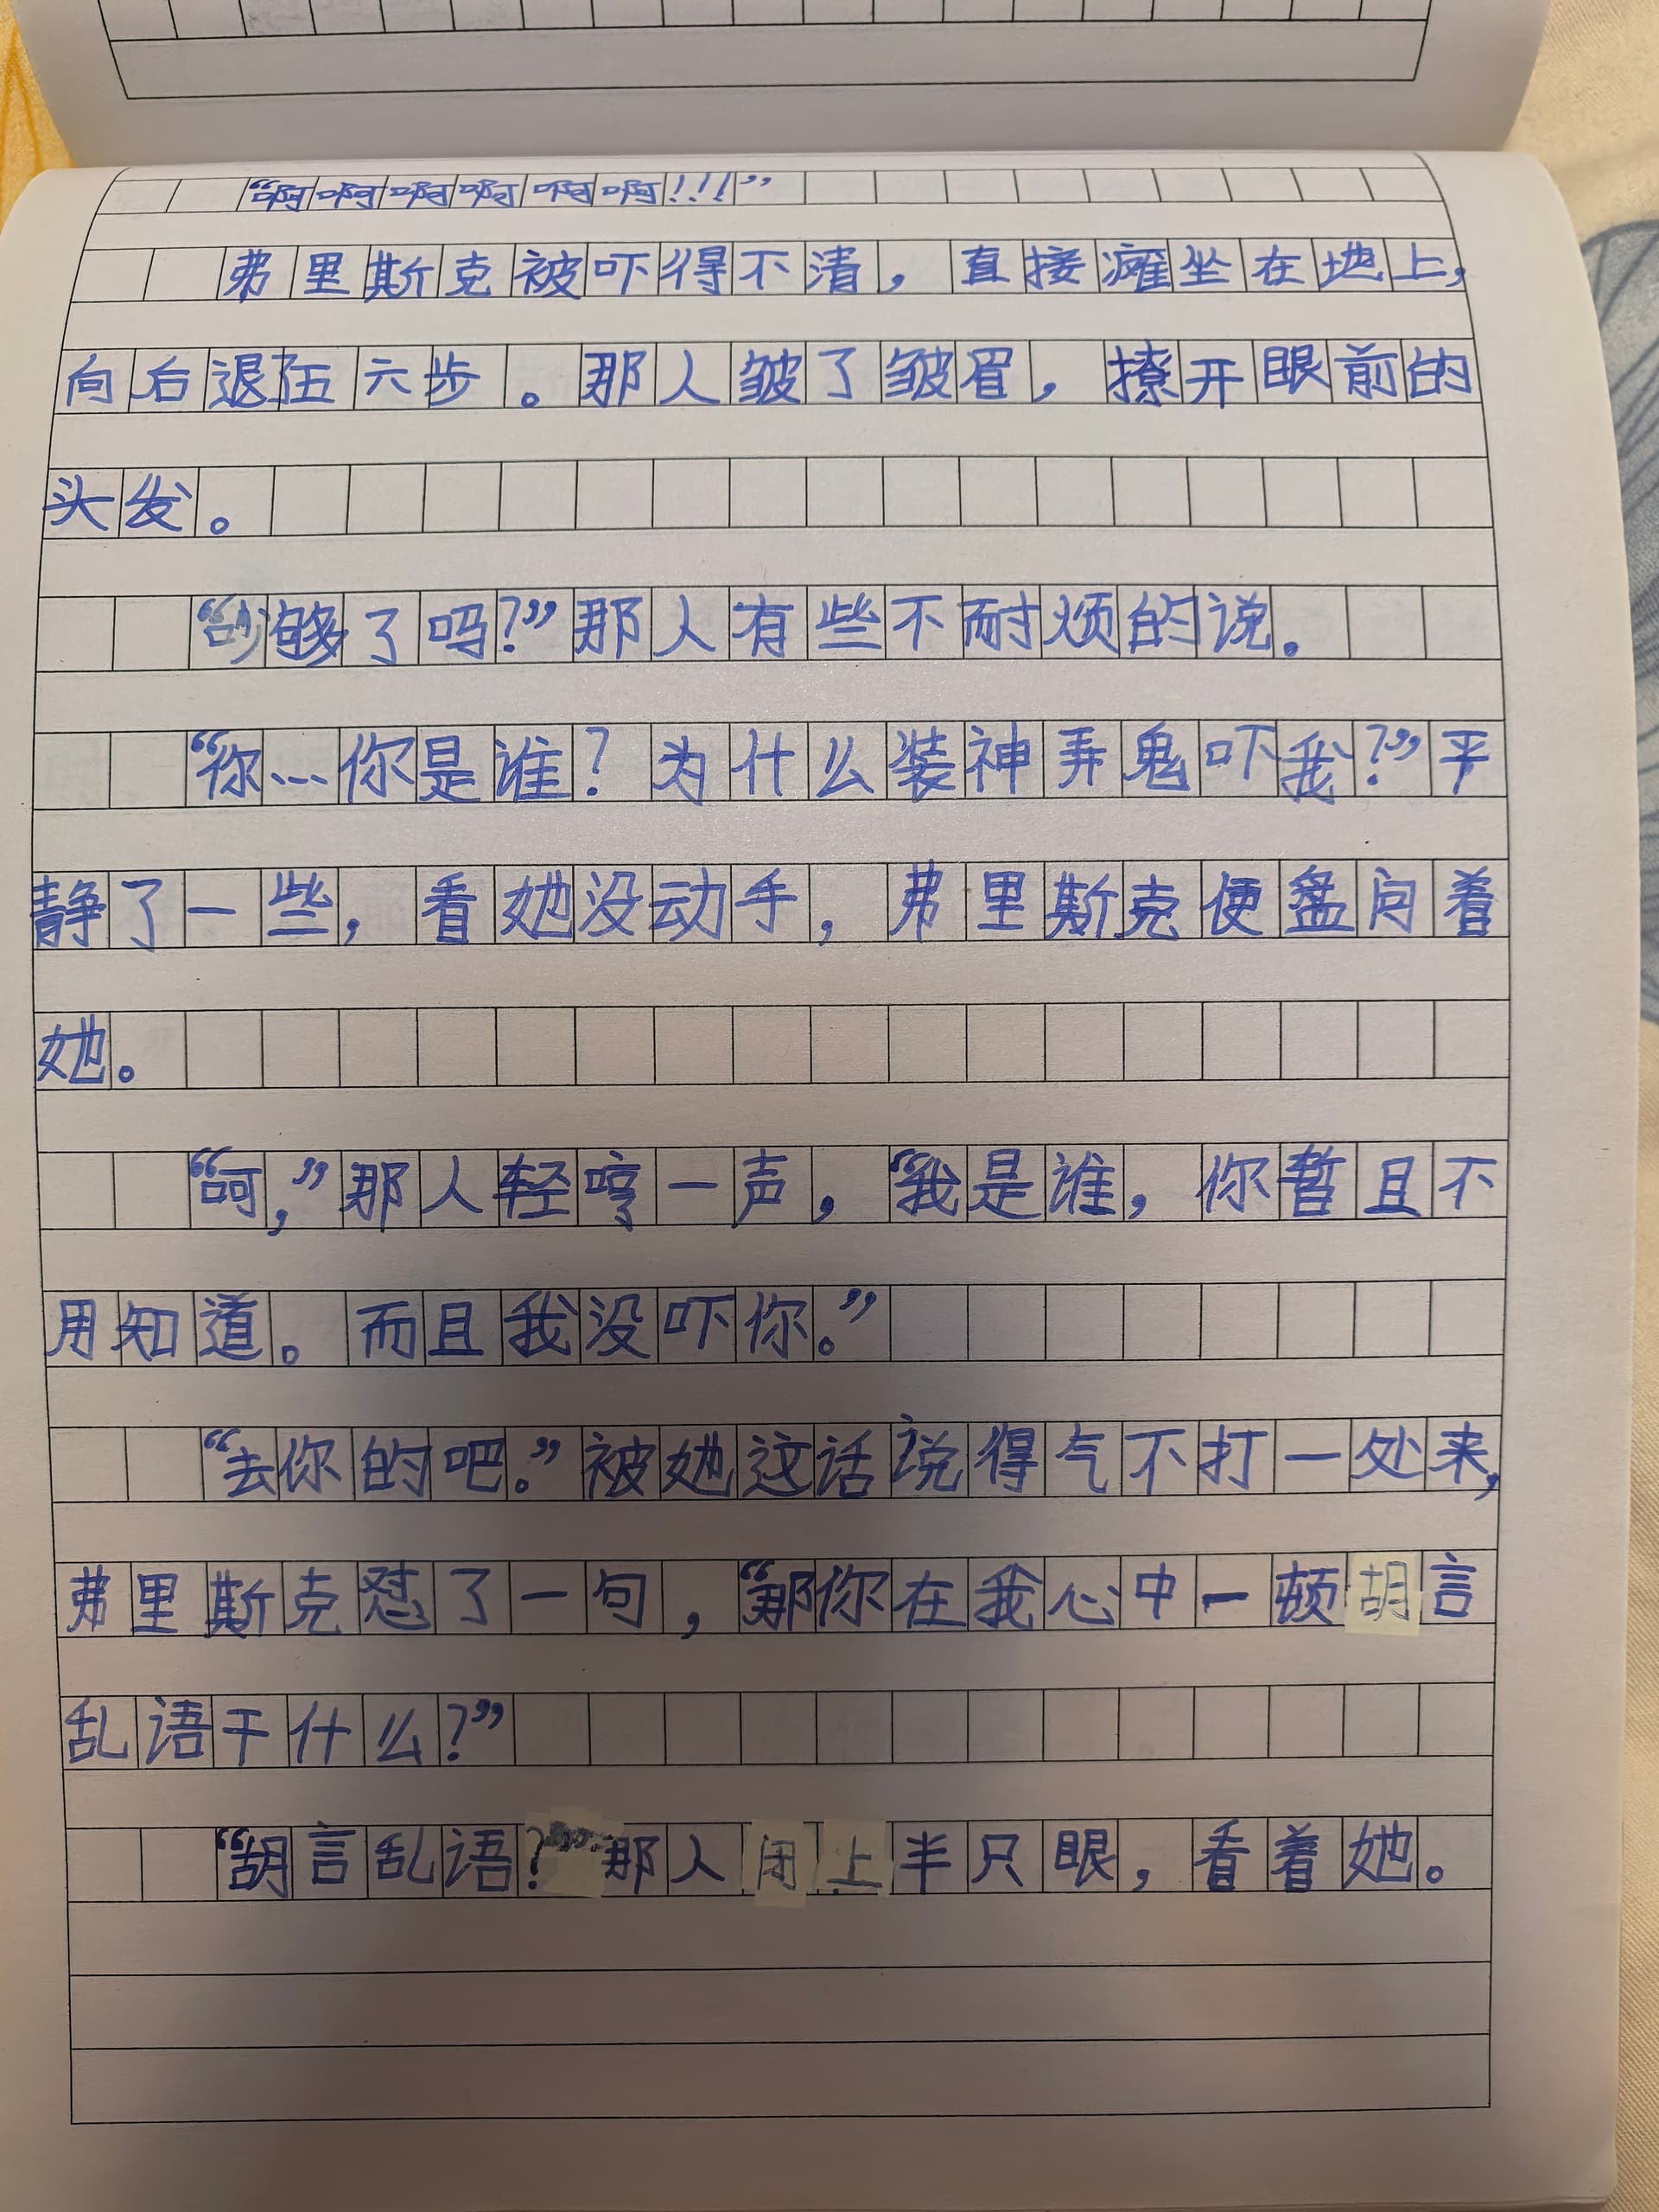 “啊啊啊啊啊啊！！！”
弗里斯克被吓得不清，直接瘫坐在地上，
向后退五六步。那人皱了皱眉，撩开眼前的
头发。
够了吗？”那人有些不耐烦的说。
“你…你是谁？为什么装神弄鬼吓我？”平
静了一些，看她没动手，弗里斯克便盘问着
她。
“呵，”那人轻哼一声，“我是谁，你暂且不
用知道。而且我没吓你。”
“去你的吧。”被她这话说得气不打一处来，
弗里斯克怼了一句，“那你在我心中一顿胡言
乱语干什么？”
“胡言乱语？”那人闭上半只眼，看着她。